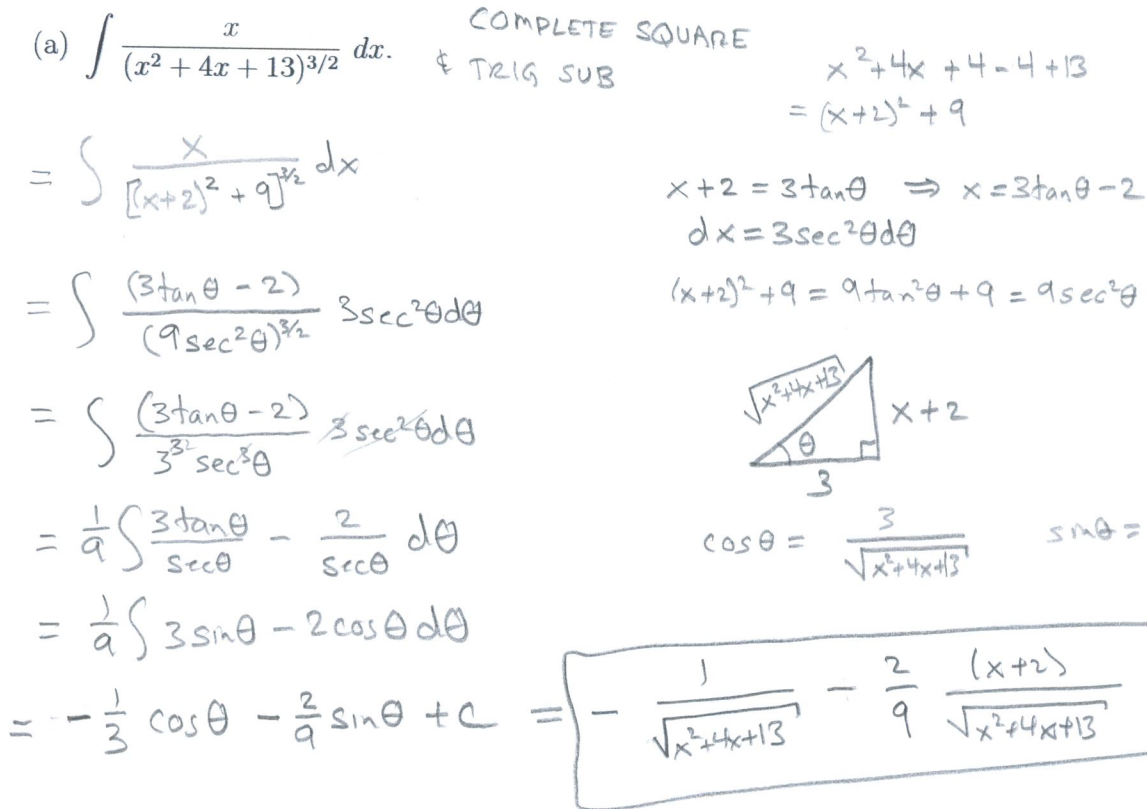 (a) ∫ x / (x² + 4x + 13)^{3/2} dx.
COMPLETE SQUARE
& TRIG SUB
x² + 4x + 4 - 4 + 13
= (x+2)² + 9
= ∫ x / [(x+2)² + 9]^{3/2} dx
x + 2 = 3tanθ ⇒ x = 3tanθ - 2
dx = 3sec²θdθ
= ∫ (3tanθ - 2) / (9sec²θ)^{3/2} 3sec²θdθ
(x+2)² + 9 = 9tan²θ + 9 = 9sec²θ
= ∫ (3tanθ - 2) / 3^{3²} sec³θ 3sec²θdθ
√(x²+4x+13)
x + 2
θ
3
= 1/9 ∫ 3tanθ / secθ - 2 / secθ dθ
cosθ = 3 / √(x²+4x+13) sinθ =
= 1/9 ∫ 3sinθ - 2cosθdθ
= - 1/3 cosθ - 2/9 sinθ + C = - 1 / √(x²+4x+13) - 2/9 (x+2) / √(x²+4x+13)